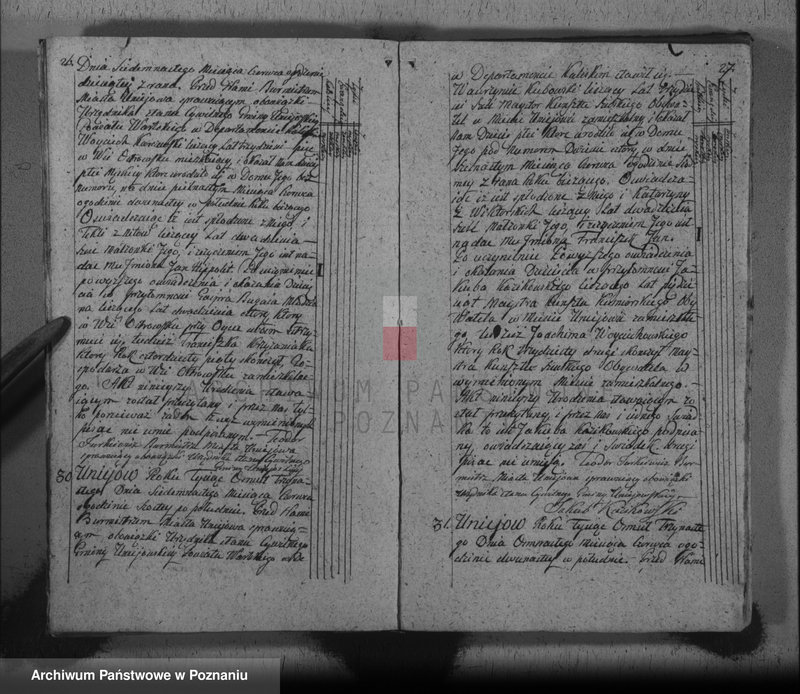 26.
Dnia Siedemnastego Miesiąca Czerwca o godzinie
dziesiątej z rana. Przed Nami Burmistrzem
Miasta Uniejowa sprawującym obowiązki
Urzędnika stanu Cywilnego Gminy Uniejowskiej
Powiatu Wartskiego w Departamencie Kaliskim
Woyciech Karczewski liczący Lat trzydzieści pięć
w Wsi Ostrowsku mieszkaiący, i okazał Nam dziecię
płci Męskiey które urodziło się w Domu Jego bez
numeru na dniu piętnastym Miesiąca Czerwca
o godzinie dwunastey w południe Roku bieżącego
Oświadczaiąc że iest spłodzone z Niego, i
Tekli z Nitów liczącey Lat dwadzieścia
sześć Małżonki Jego, i życzeniem Jego iest na-
dać mu Imiona Jan Hippolit. Po uczynieniu
powyższego oświadczenia i okazania Dziecię-
cia w przytomności
na liczącego Lat dwadzieścia cztery który
w Wsi Ostrowsku przy Oycu swoim utrzy-
muie się, tudzież Franciszka Krzyżaniaka
który Rok czterdziesty piąty skończył Go-
spodarza w Wsi Ostrowsku zamieszkałe-
go. Akt ninieyszy Urodzenia stawa-
iącym został przeczytany i przez Nas tyl-
ko ponieważ żaden z wyż wymienionych
pisać nie umie podpisanym. Teodor
Furkiewicz Burmistrz Miasta Uniejowa
sprawuiący obowiązki Urzędnika stanu Cywilnego
Gminy Uniejowskiey
30 Unieyow Roku Tysiąc Osmset Trzyna-
stego Dnia Siedemnastego Miesiąca Czerwca
o godzinie szostey po południu. Przed Nami
Burmistrzem Miasta Unieyowa sprawuią-
cym obowiązki Urzędnika stanu Cywilnego
Gminy Unieyowskiey Powiatu Wartskiego w De
27.
w Departamencie Kaliskim stawił się
Wawrzyniec Kubowski liczący Lat trzydzie
ści sześć Maystor Kunsztu Szewskiego Obywa-
tel w Mieście Unieyowie zamieszkały i okazał
Nam Dziecię płci Męskiey które urodziło się w Domu
Jego pod Numerem dwieście cztery, w dniu
szesnastym Miesiąca Czerwca o godzinie siod-
mey z rana Roku bieżącego. Oświadcza-
iąc iż iest spłodzone z Niego i Katarzyny
z Wiktorskich liczącey Lat dwadzieścia
sześć Małżonki Jego, życzeniem Jego iest
nadać mu Imiona Franciszek Jan.
Po uczynieniu powyższego oświadczenia
i okazania Dziecięcia w przytomności Ja-
kuba Kazikowskiego liczącego Lat pięćdzie-
siąt Maystra Kunsztu Kuśnirskiego Oby-
watela w Mieście Unieyowie zamieszkałe-
go, tudzież Joachima Woyciechowskiego
który Rok trzydziesty drugi skończył May-
stra Kunsztu Szewskiego Obywatela w
wymienionym Mieście zamieszkałego.
Akt ninieyszy Urodzenia stawaiącym zo-
stał przeczytany, i przez Nas i iednego Świad-
ka to iest Jakuba Kazikowskiego podpisa-
ny, oświadczaiący zaś i Świadek drugi
pisać nie umieią. Teodor Furkiewicz Bur-
mistrz Miasta Unieyowa sprawuiący obowiązki
Urzędnika stanu Cywilnego Gminy Unieyowskiey.
Jakub Kazikowski
31. Unieyow Roku Tysiąc Osmset Trzynaste
go Dnia Osmnastego Miesiąca Czerwca o go-
dzinie dwunastey w południe. Przed Nami
ARCHIWUM PAŃ
POZNA
Archiwum Państwowe w Poznaniu